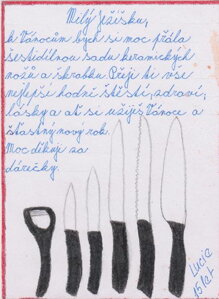 Milý Ježíšku,
k Vánocům bych si moc přála
šestidílnou sadu keramických
nožů a škrabku. Přeji ti vše
nejlepší hodně štěstí, zdraví,
lásky a ať si užiješ Vánoce a
šťastný nový rok.
Moc děkuji za
dárečky.
Lucie
15 let